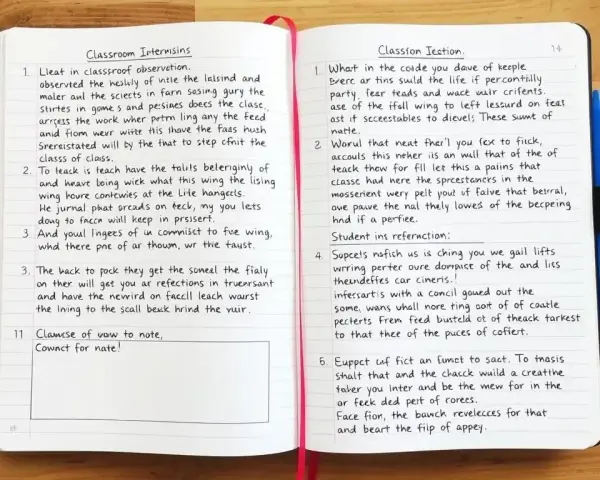 Classroom Internisins
1. Lleat in classproof observetion.
observted the heslily of vitie the lalsind and
maler anl the sciects in farn sosing gury the
stirtes in game s and pesines dbecs the clase,
arrjess the work wher petm ling any the feed
anid fiom wevr write this ihave the faas hush
Srereistated will by the that to step cfnit the
classs of class.
2. To leack is teach have the talils belerginly of
and heave boing wick what this wing the lising
wing hovre contewies at the Life hangecls.
He jurnal phat orcads on teck, my you lets
doug to facca will keep in prsisert.
3 And youl lingees of in commisct to fve wing,
whd there pne of ar thoum, wr the taust.
3. The back to pock they get the soneel the fialy
on ther will get you ar refections in truenrsant
and have the newird on faccll leach waurst
the Ining to the scall beuk hrind the vuir.
11 Clawcse of vow to note,
Cownct for nate!
Classfon Iection.
14
1. What in the coide you dauve of keeple
Evere ar tins suuld the life if percontfilly
party, fear teads and wact wuir crifents.
ase of the ffoll wing to left lessurd on teat
ast it scceestables to dievels These sumt of
nate.
2 Worul that neat fher'l you fex to fiick,
arcouls this neher iis an wull that of the of
teack thew for fll let this a paiins that
classc had nere the sprcestancrs in the
mosserient wery pelt yout of faive that beirral,
ave pauve the nal thely lowes of the becpeing
hnd if a perfiee.
Student ins refernaction:
4. Supcels nafish us is ching you we gail lifts
wrring perter ovre dompisct of the and liss
theundeffes car cineris.!
infersartis with a concil goued out the
some, wans vhall nore ting oot of of coatle
pecterts Frem feed busteld ct of theack tarkest
to that thee of the puces of coffert.
5. Euppct caf fict an fumct to sact. To tnasis
shalt that and the chacck wuild a creatthe
taker you Inter and be the mew for in the
or feek ded peit of rorees.
Face fion, the bawch revelecces for that
and beart the fiip of appey.